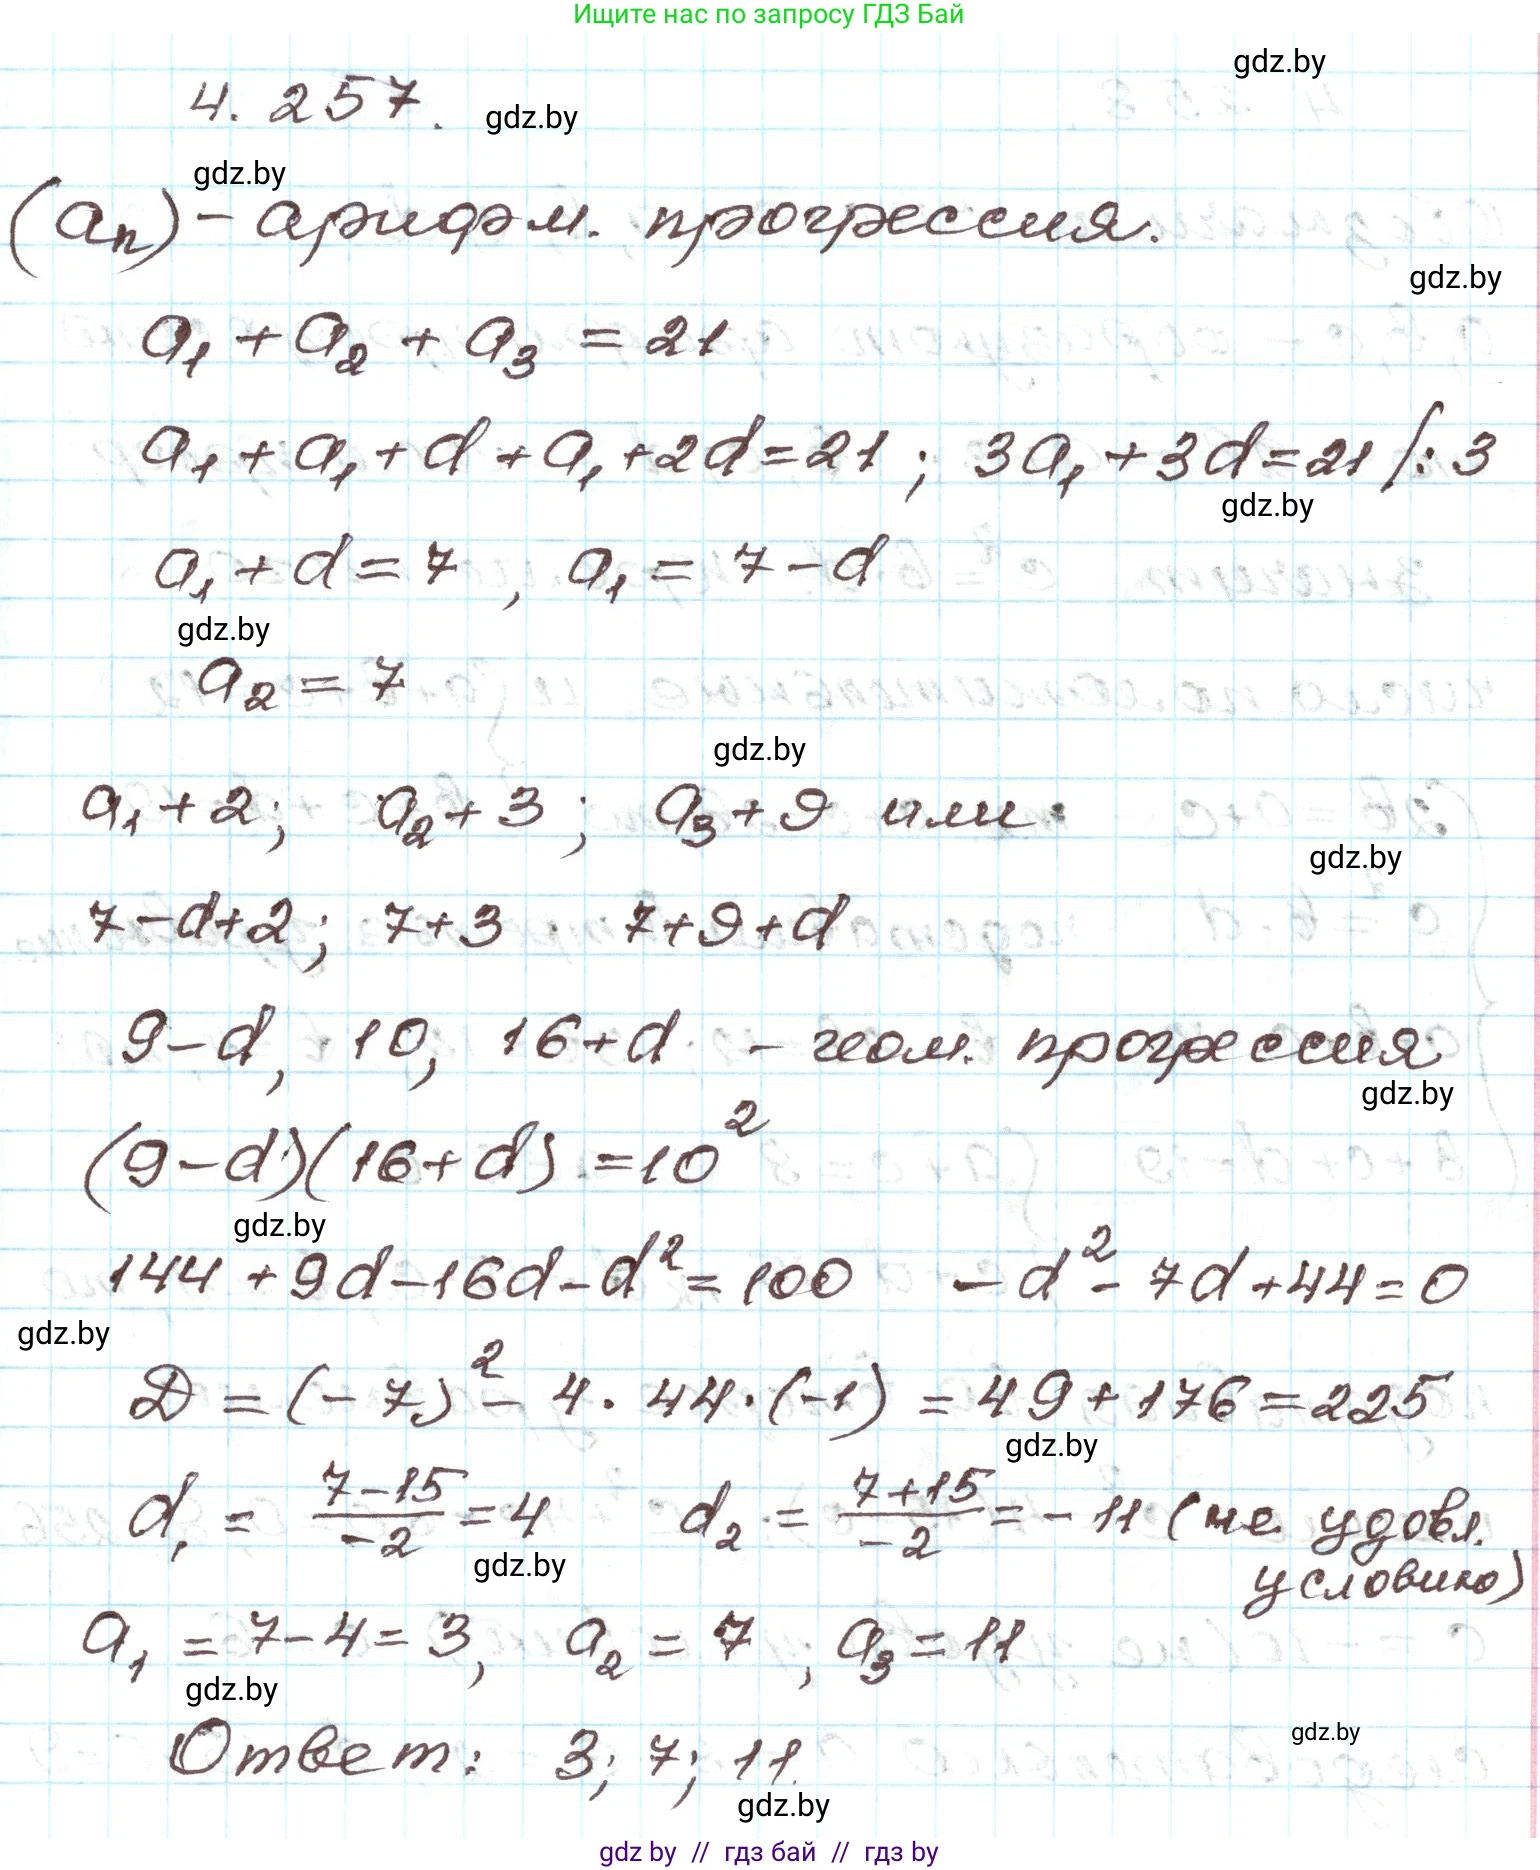 Ищите нас по запросу ГДЗ Бай
gdz.by
4.257.
gdz.by
gdz.by
(aₙ) – арифм. прогрессия.
gdz.by
a₁ + a₂ + a₃ = 21
a₁ + a₁ + d + a₁ + 2d = 21 ; 3a₁ + 3d = 21 |: 3
gdz.by
a₁ + d = 7 , a₁ = 7 – d
gdz.by
a₂ = 7
gdz.by
a₁ + 2; a₂ + 3 ; a₃ + 9 или:
gdz.by
7 – d + 2; 7 + 3 7 + 9 + d
9 – d, 10, 16 + d – геом. прогрессия
gdz.by
(9 – d)(16 + d) = 10²
gdz.by
144 + 9d – 16d – d² = 100 – d² – 7d + 44 = 0
gdz.by
D = (–7)² – 4 · 44 · (–1) = 49 + 176 = 225
gdz.by
d₁ = (7 – 15)/(–2) = 4 d₂ = (7 + 15)/(–2) = – 11 (не удовл.
gdz.by
условию)
a₁ = 7 – 4 = 3, a₂ = 7 , a₃ = 11
gdz.by
gdz.by
Ответ: 3; 7; 11.
gdz.by
gdz by // гдз бай // гдз by